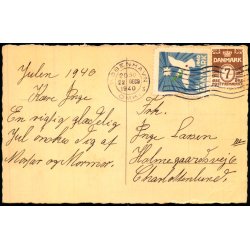 Julen 1940
Kære Inge
En rigtig glædelig
Jul ønskes dig af
Morfar og Mormor.
KØBENHAVN
22 DECB
1940
OMK
DANMARK
7
Frk.
Inge Larsen
Holmegaardsvej 6
Charlottenlund.